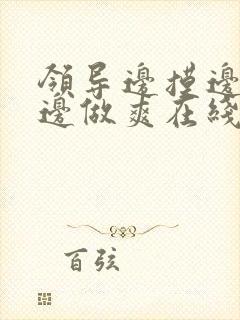 領导邊摸邊
邊做爽在綫
百弦